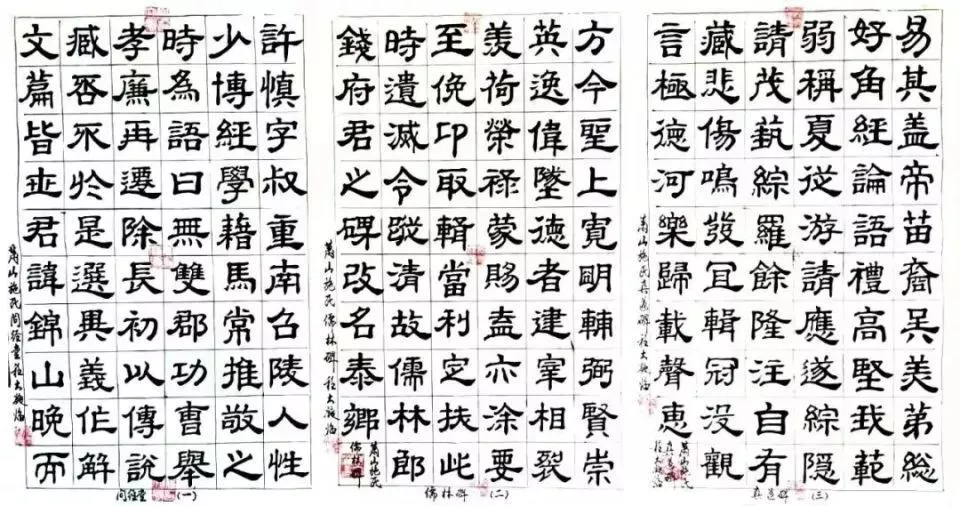 許慎字叔重南召陵人性
少博經學籍馬常推敬之
時為語曰無雙郡功曹舉
孝廉再遷除長初以傳說
臧否不於是選異義作解
文篇皆世君諱錦山晚而
蕭山施氏問經堂
問經堂(一)
方今聖上寬明輔弼賢崇
英逸偉墜德者建宰相裂
羨荷榮祿蒙賜盍亦涂要
至俛印取輯當利定扶此
時遺滅令蹤清故儒林郎
錢府君之碑改名泰鄉
蕭山施氏儒林碑
蕭山施氏
儒林碑
儒林碑(二)
易其盖帝苗裔吳美第總
好角經論語禮高堅我範
弱稱夏從游請應遂綜隱
請茂執綜羅餘隆注自有
藏悲傷鳴發冝輯冠没觀
言極德河樂歸載聲惠
蕭山施氏
(三)